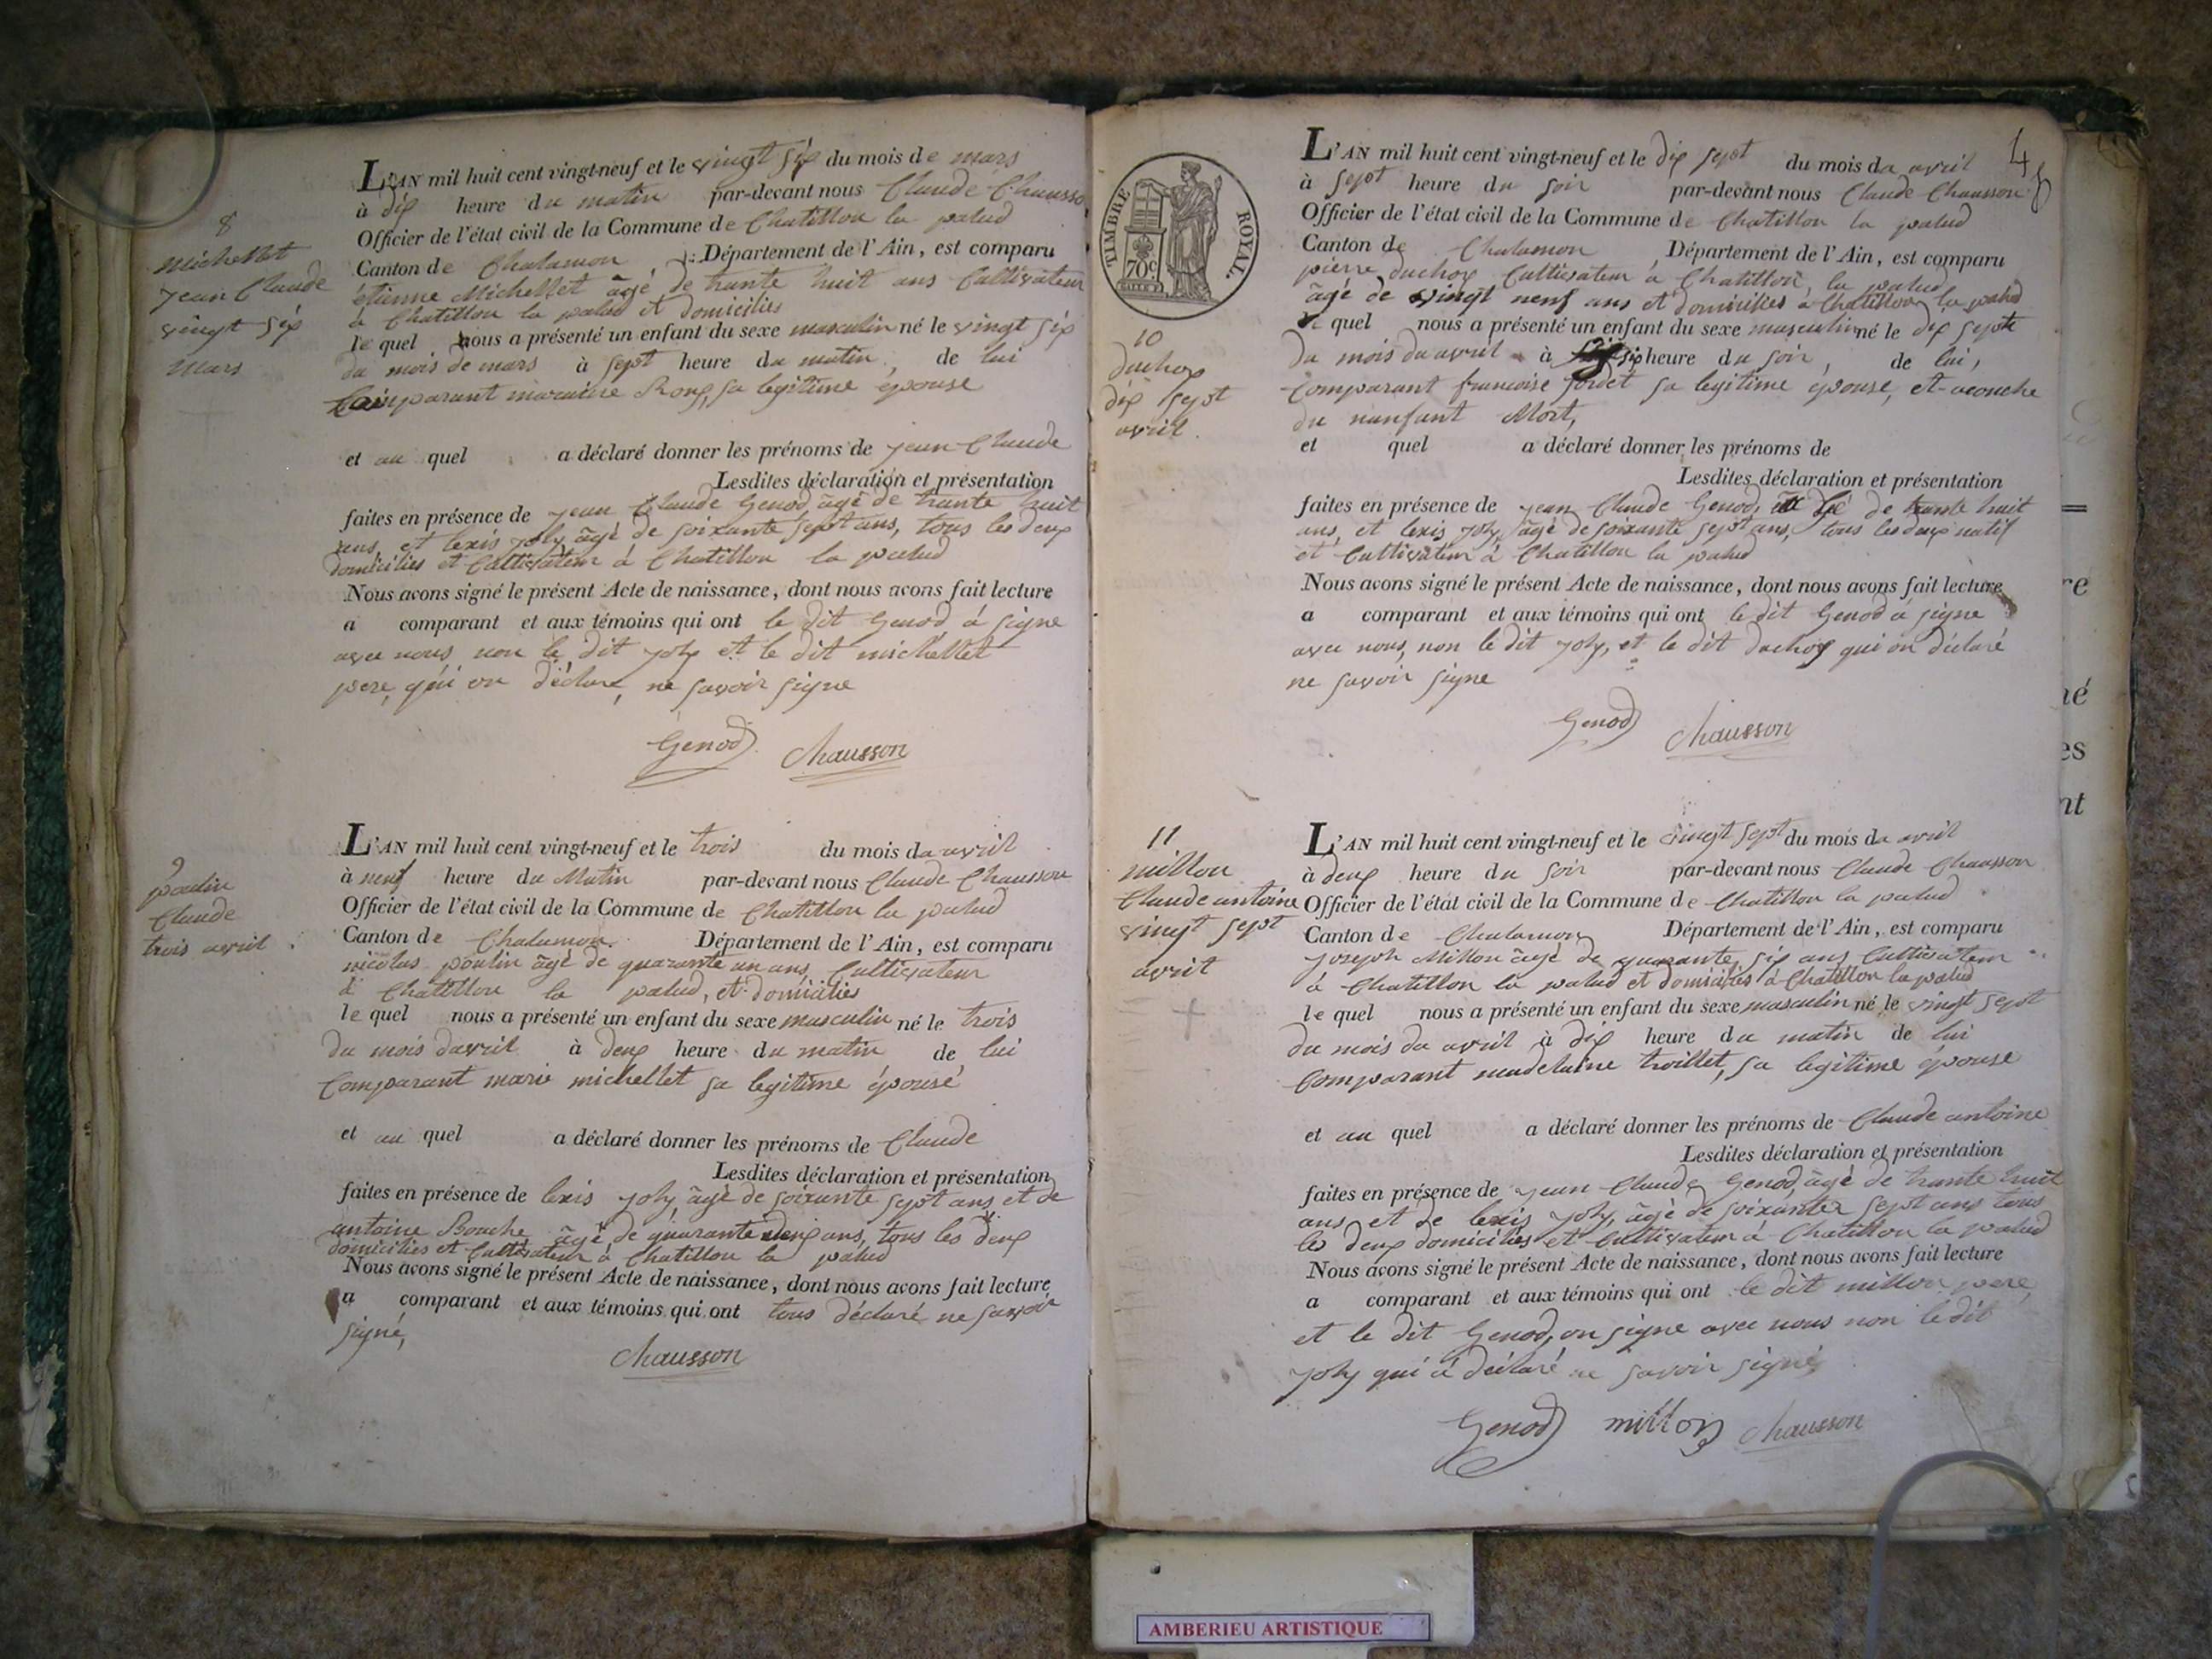 8
michellet
jean Claude
vingt six
mars
L'AN mil huit cent vingt-neuf et le vingt six du mois de mars
à dix heure du matin par-devant nous Claude Chausso
Officier de l'état civil de la Commune de Chatillon la palud
Canton de Chalamon Département de l'Ain, est comparu
étienne Michellet âgé de trante huit ans Cultivateur
à Chatillon la palud et domicilies
le quel nous a présenté un enfant du sexe masculin né le vingt six
du mois de mars à sept heure du matin, de lui
Comparant sa legitime épouse
et au quel a déclaré donner les prénoms de jean Claude
Lesdites déclaration et présentation
faites en présence de jean Claude Genod âgé de trante huit
ans, et lexis joly, âgé de soixante sept ans, tous les deux
domicilies et Cultivateur à Chatillon la palud
Nous avons signé le présent Acte de naissance, dont nous avons fait lecture
a comparant et aux témoins qui ont le dit Genod à signe
avec nous, non le dit joly et le dit michellet
pere, qui on déclare, ne savoir signe
Genod Chausson
9
poulin
Claude
trois avril
L'AN mil huit cent vingt-neuf et le trois du mois da avril
à neuf heure du Matin par-devant nous Claude Chausson
Officier de l'état civil de la Commune de Chatillon la palud
Canton de Chalamon Département de l'Ain, est comparu
nicolas poulin âgé de quarante un ans, Cultivateur
à Chatillon la palud, et domicilies
le quel nous a présenté un enfant du sexe masculin né le trois
du mois davril à deux heure du matin de lui
Comparant marie michellet sa legitime épouse
et au quel a déclaré donner les prénoms de Claude
Lesdites déclaration et présentation
faites en présence de lexis joly, âgé de soixante sept ans, et de
antoine Bouche âgé de quarante deux ans, tous les deux
domicilies et Cultivateur à Chatillon la palud
Nous avons signé le présent Acte de naissance, dont nous avons fait lecture
a comparant et aux témoins qui ont tous déclaré ne savoir
signé,
Chausson
4
TIMBRE ROYAL.
70c
10
duchox
dix sept
avril
L'AN mil huit cent vingt-neuf et le dix sept du mois da avril
à sept heure du soir par-devant nous Claude Chausson
Officier de l'état civil de la Commune de Chatillon la palud
Canton de Chalamon Département de l'Ain, est comparu
pierre duchox Cultivateur à Chatillon, la palud
âgé de vingt neuf ans et domicilies à Chatillon la palud
le quel nous a présenté un enfant du sexe masculin né le dix septe
du mois du avril à six heure du soir, de lui,
Comparant francoise sa legitime épouse, et acouche
du nanfant Mort,
et quel a déclaré donner les prénoms de
Lesdites déclaration et présentation
faites en présence de jean Claude Genod, de trante huit
ans, et lexis joly, âgé de soixante sept ans, tous les deux natif
et Cultivateur à Chatillon la palud
Nous avons signé le présent Acte de naissance, dont nous avons fait lecture
a comparant et aux témoins qui ont le dit Genod à signe
avec nous, non le dit joly, et le dit duchox qui on déclaré
ne savoir signe
Genod Chausson
11
millon
Claude antoine
vingt sept
avril
L'AN mil huit cent vingt-neuf et le vingt sept du mois da avril
à deux heure du soir par-devant nous Claude Chausson
Officier de l'état civil de la Commune de Chatillon la palud
Canton de Chalamon Département de l'Ain, est comparu
joseph Millon âgé de quarante six ans Cultivateur
à Chatillon la palud et domicilies à Chatillon la palud
le quel nous a présenté un enfant du sexe masculin né le vingt sept
du mois da avril à dix heure du matin de lui
Comparant madelaine troillet, sa legitime épouse
et au quel a déclaré donner les prénoms de Claude antoine
Lesdites déclaration et présentation
faites en présence de jean Claude Genod, âgé de trante huit
ans, et de lexis joly, âgé de soixante sept ans tous
les deux domicilies et Cultivateur à Chatillon la palud
Nous avons signé le présent Acte de naissance, dont nous avons fait lecture
a comparant et aux témoins qui ont le dit millon pere
et le dit Genod, on signe avec nous non le dit
joly qui à déclaré ne savoir signé
Genod millon Chausson
re
né
es
nt
AMBERIEU ARTISTIQUE